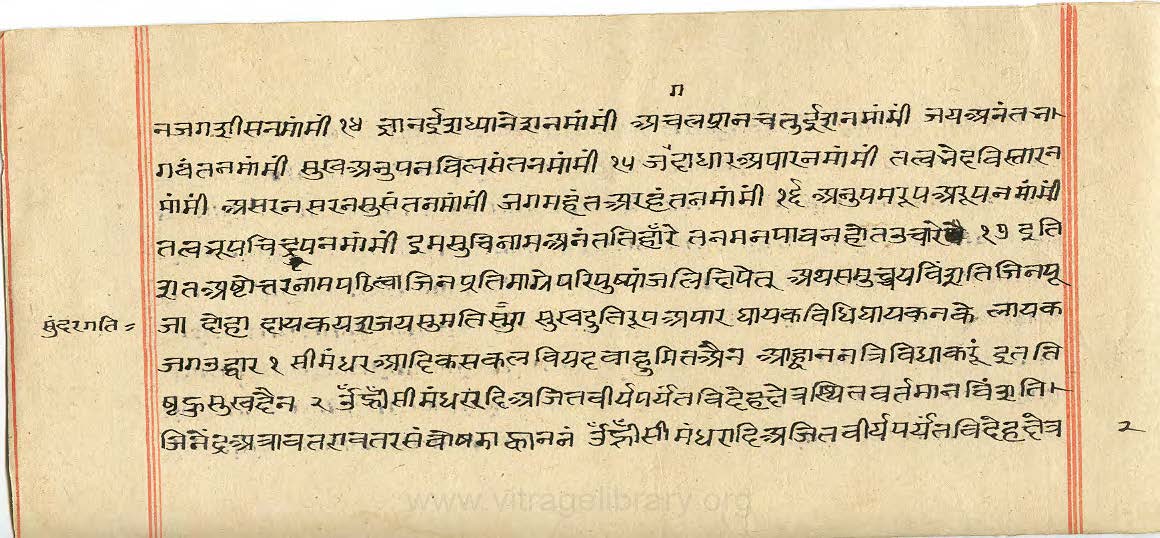 ग
नजगदीसनमांमी १४ ज्ञानईशध्यानेशनमांमी अचलप्रानचतुर्ईशनमांमी जयअनंतना
गवंतनमांमी सुखअनुपनविलसंतनमांमी १५ अपारनमांमी तत्वभेदविस्तारन
मांमी असरनसरनसुसंतनमांमी जगमहंतअरहंतनमांमी १६ अनुपमरूपअरूपनमांमी
तत्वभूपचिद्रूपनमांमी इमसुचिनामअनंततिहाँरे तनमनपावनहोतउचारे १७ इति
शतअष्टोत्तरनामपठित्वाजिनप्रतिमाग्रेपरिपुष्पांजलिक्षिपेत् अथसमुच्चयविंशतिजिनपू
सुंदरगति=
जा दोहा दायकयशजयसुमति सुखदुतिरूपअपार घायकविधिघायकनके लायक
जगउद्धार १ सीमंधरआदिकसकल आह्वाननत्रिविधाकरूं इतति
ष्टहुसुखदैन २ उँह्रीँसीमंधररदिअजितवीर्यपर्यंतविदेहक्षेत्रस्थितवर्तमानविंशति
जिनेंद्रअत्रावतरावतरसंवोषट् उँह्रीँसीमंधरादिअजितवीर्यपर्यंतविदेहक्षेत्र
२
www.vitragelibrary.org